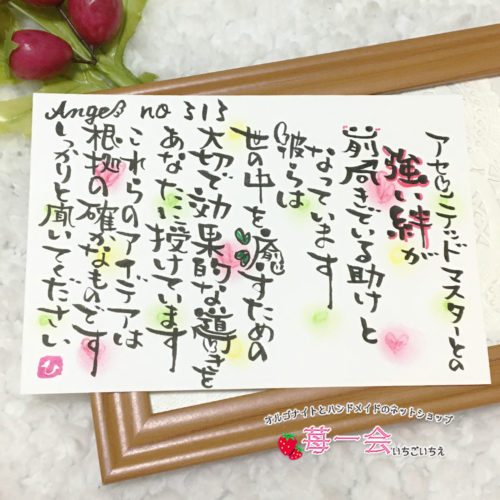 Angel no 313
アセンテッドマスターとの
強い絆が
前向きでいる助けと
なっています
彼らは
世の中を癒すための
大切で効果的な導きを
あなたに授けています
これらのアイデアは
根拠の確かなものです
しっかりと聞いてください
ひ
オルゴナイトとハンドメイドのネットショップ
苺一会
いちごいちえ